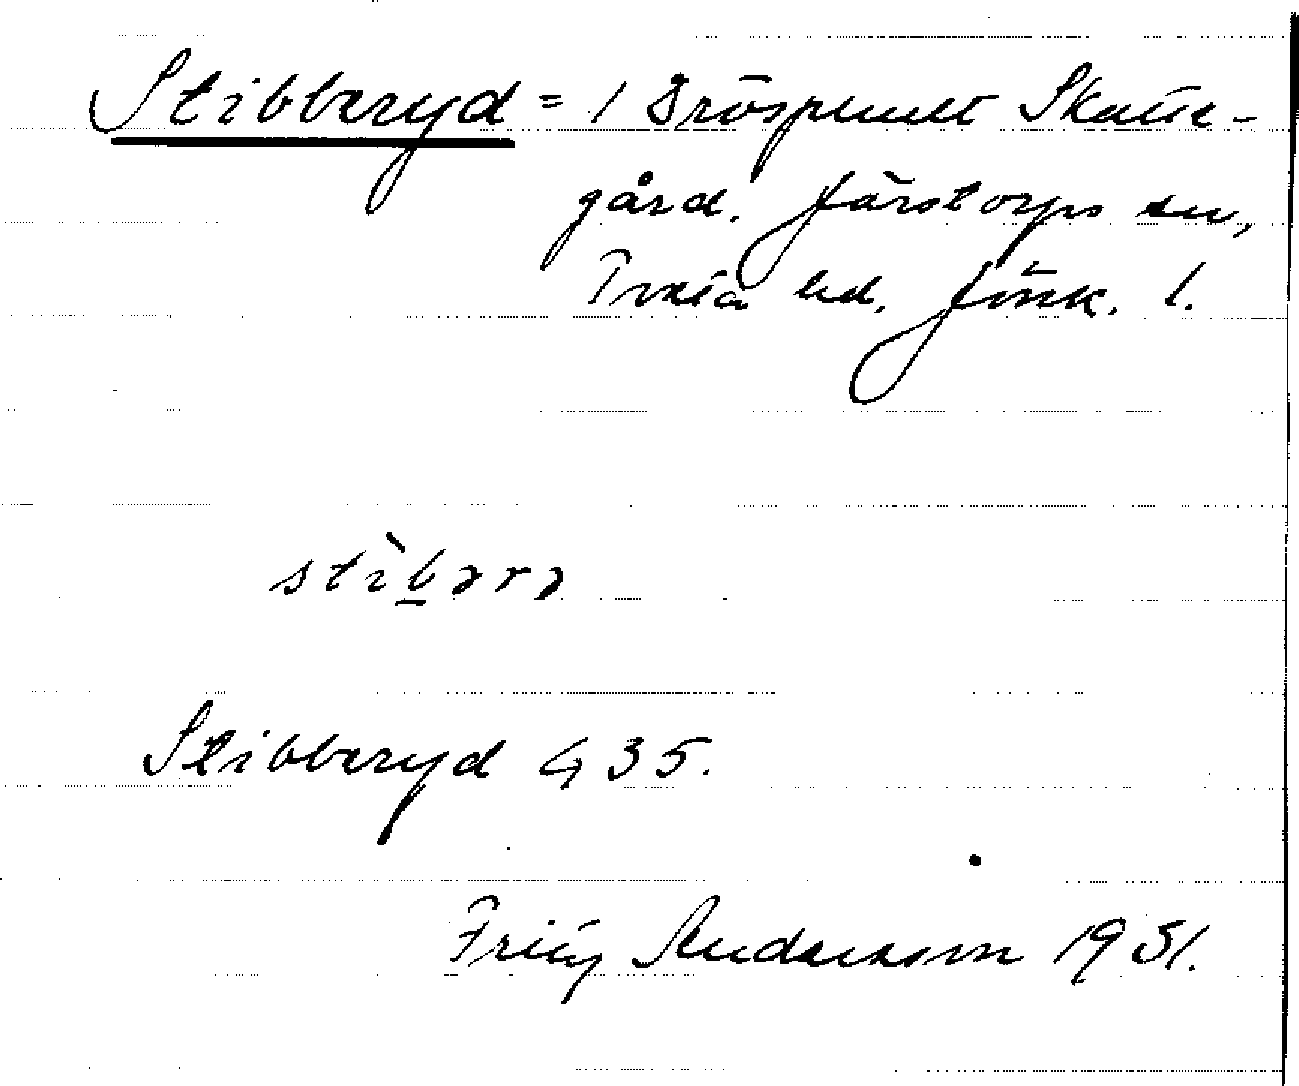 Stibberyd = 1 Bröspunkt Skatte-
gård. Järstorps sn,
Tveta hd. Jönk. l.
stìb̲ərə
Stibberyd G 35.
Fritz Andersson 1931.